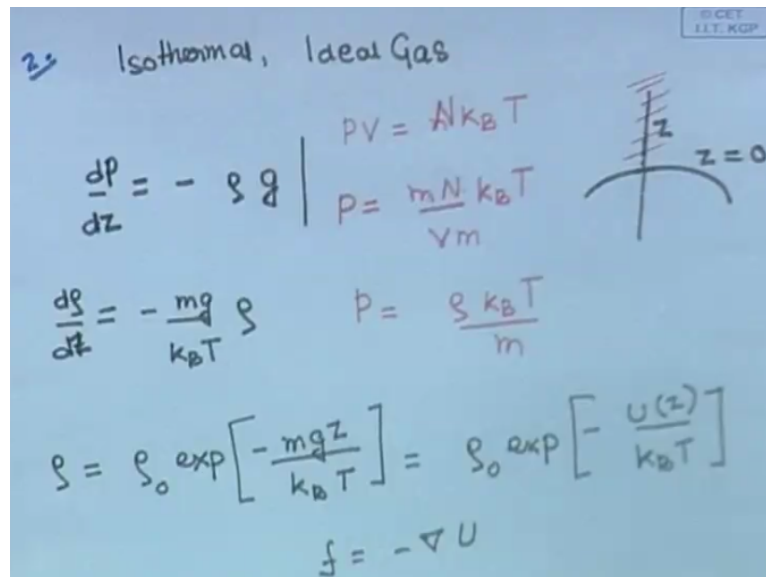 © CET
I.I.T. KGP
2. Isothermal, Ideal Gas
dP/dz = - ρ g | PV = N k_B T
P = mN k_B T / V m
z
z = 0
dρ/dz = - mg/k_B T ρ
P = ρ k_B T / m
ρ = ρ₀ exp[- mgz / k_B T] = ρ₀ exp[- U(z) / k_B T]
f = - ∇ U